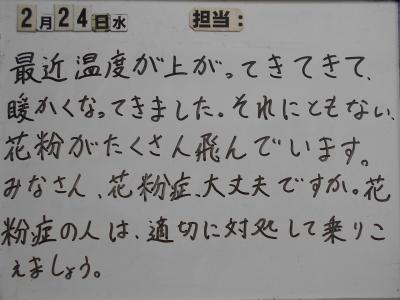 2月24日水 担当:
最近温度が上がってきてきて、
暖かくなってきました。それにともない、
花粉がたくさん飛んでいます。
みなさん、花粉症、大丈夫ですか。花
粉症の人は、適切に対処して乗りこ
えましょう。